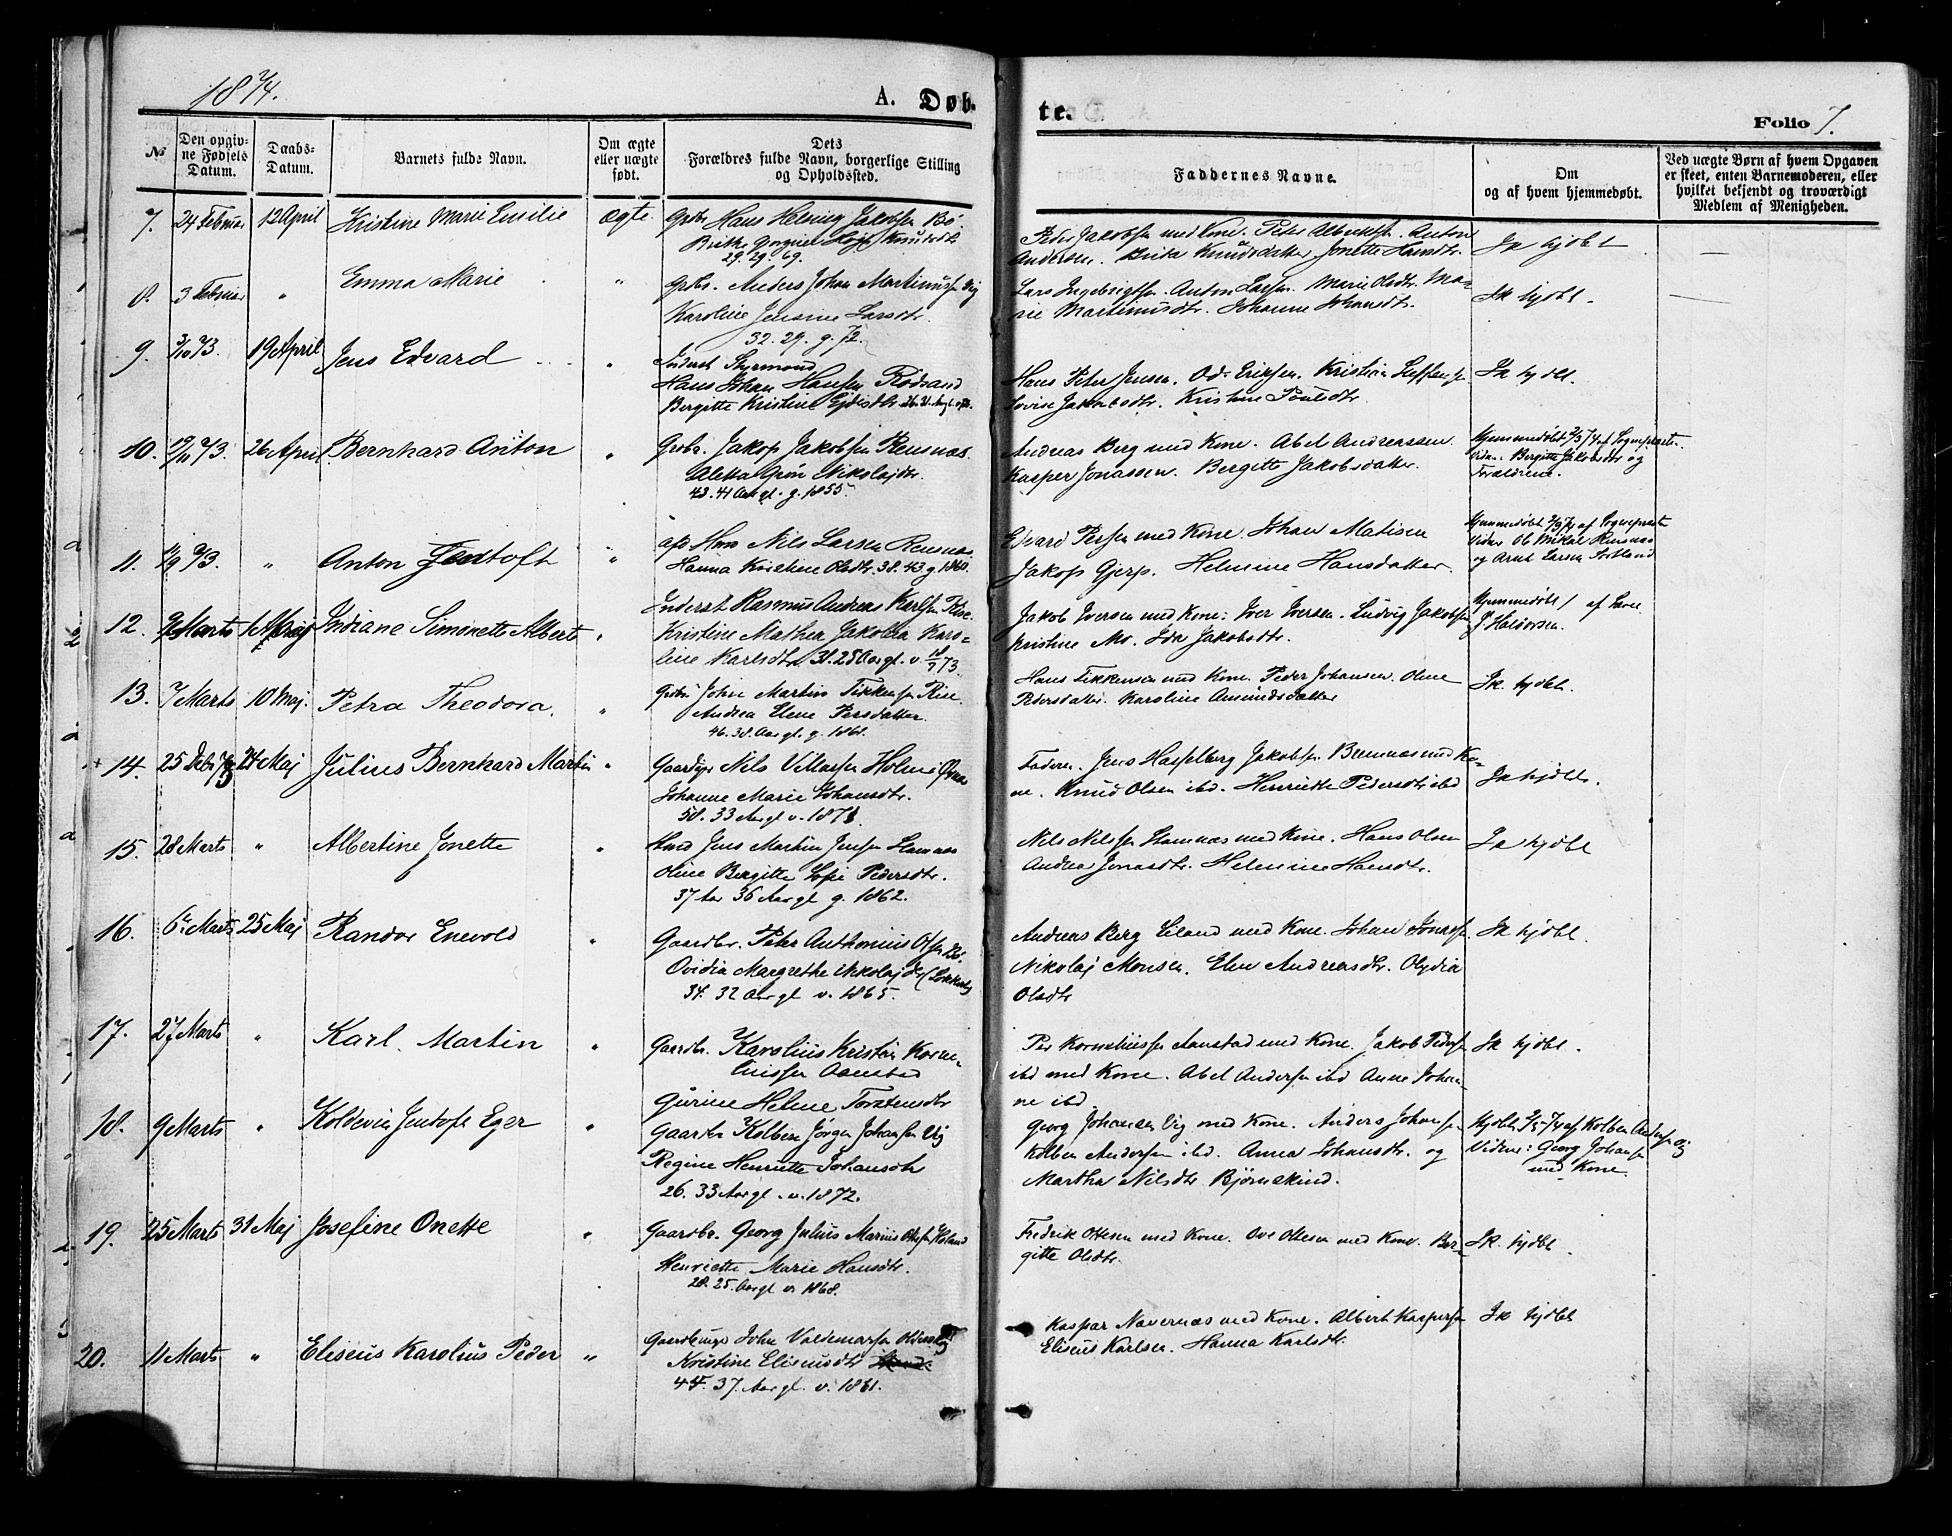 1874.
A. Døb-
te.
Folio 7.
№
Den opgiv-
ne Fødsels
Datum.
Daabs-
Datum.
Barnets fulde Navn.
Om ægte
eller uægte
født.
Dets
Forældres fulde Navn, borgerlige Stilling
og Opholdssted.
Faddernes Navne.
Om
og af hvem hjemmedøbt.
Ved uægte Børn af hvem Opgaven
er skeet, enten Barnemoderen, eller
hvilket bekjendt og troværdigt
Medlem af Menigheden.
7. 24 Februar 12 April Kristine Marie Emilie Ægte. Gbr Hans Jakobsen Bø
29. 29. 69.
Peder Jakobsen med Kone. Peter Albertsen. Anton
Andersen. Knudsdatter Jonette Hansdtr.
Ik hjdbt —
8. 3 Februar " Emma Marie " Gbr. Anders Johan Martinussen Vig
Karoline Jensine Larsdtr.
32. 29. g. 72.
Lars Ingebrigtsen. Anton Larsen. Marie Olsdtr. Ma-
rie Martinusdtr. Johanne Johansdtr.
Ik hjdbt. —
9. 3/10 73. 19 April Jens Edvard " Inderst Styrmand
Hans Johan Hansen Rødsand
Bergitte Kristine
Hans Peter Jensen. Od. Eriksen. Kristian Steffensen
Lovise Jakobsdtr. Kristine Poulsdtr
Ik hjdbt.
10. 19/11 73. 26 April Bernhard Anton " Grbr. Jakop Jakobsen Rensnæs
Aletta Grøn Nikolajdtr.
43. 41 Aar gl. g. 1855.
Andreas Berg med Kone. Abel Andreassen
Kasper Jonassen. Bergitte Jakobsdatter.
Hjemmedøbt 2/3 74 af Sognepræst.
Vidn.: Bergitte Jakobsdtr og
Forældrene.
11. 14/9 73. " Anton Jentoft " Nils Larsen Rensnæs
Hanna Kristine Olsdtr. 38. 43 g 1860.
Edvard Persen med Kone. Johan Matisen
Jakop Gjerp. Helmine Hansdatter.
Hjemmedøbt 2/3 74 af Sognepræst
Vidner Ole Mikal Rensnæs
og Arnt Larsen Sortland
12. 9 Marts 1 Maj Indiane Simonette Albert " Inderst Rasmus Andreas Karlsen Rise
Kristine Mathea Jakobea Karo-
line Karlsdtr 31. 25 Aar gl. v. 18/7 73.
Jakob Iversen med Kone: Iver Iversen. Ludvig Jakobsen
Kristine Mo. Ida Jakobsdtr.
Hjemmedøbt af Lærer
P. Haldorsen.
13. 7 Marts 10 Maj. Petra Theodora. " Grbr John Martin Fikkensen Rise
Andrea Elene Persdatter.
46. 38. Aar gl. g. 1861.
Hans Fikkensen med Kone. Peder Johansen. Oline
Pedersdatter. Karoline Amundsdatter
Ik. hjdbt.
14. 25 Debr 73 24 Maj Julius Bernhard Martin " Gaardbr Nils Villassen Holm
Johanne Marie Johansdtr.
50. 33 Aar gl v. 1871.
Faderen. Jens Hasselberg Jakobsen Bremnæs med Ko-
ne. Knud Olsen ibd. Henriette Pedersdtr ibd
Ik hjdbt.
15. 28 Marts " Albertine Jonette " Jens Martin Jensen Stamnæs
Oline Bergitte Sofie Pedersdtr.
37 Aar 36 Aar gl g. 1862.
Nels Nelssen Stamnæs med Kone. Hans Olsen
Andrea Jonasdtr. Helmine Hansdtr.
Ik hjdbt
16. 6te Marts 25 Maj Randor Enevold " Gaardbr. Peter Anthonius Olsen Bø
Ovidia Margrethe Nikolajdtr
34. 32 Aar gl v. 1865.
Andreas Berg Eiland med Kone. Johan Jonassen
Nikolaj Monsen. Elen Andreasdtr. Olydia
Olsdtr
Ik hjdbt.
17. 27 Marts " Karl Martin " Gaardbr. Karolius Kristian Korne-
liussen Aanstad
Gurine Helene Torstensdtr
Per Korneliussen Aanstad med Kone. Jakob Pedersen
ibd med Kone. Abel Andersen ibd Anne Johan-
ne ibd
Ik hjdbt.
18. 9 Marts " Koldevin Jentoft Eger " Gaardbr Kolben Jørgen Johansen Vig
Regine Henriette Johansdtr
26. 33 Aar gl. v. 1872.
Georg Johansen Vig med Kone. Anders Johansen
Kolben Andersen ibd. Anna Johansdtr. og
Martha Nilsdtr Bjørnskind.
Hjdbt 2/5 74 af Kolben Andersen Vig
Vidner: Georg Johansen
med Kone.
19. 25 Marts 31 Maj Josefine Onette " Gaardbr. Georg Julius Marius Otesen Holand
Henriette Marie Hansdtr.
28. 25. Aar gl v. 1868.
Fredrik Ottesen med Kone. Ove Ottesen med Kone. Ber-
gitte Olsdtr.
Ik. hjdbt.
20. 11 Marts " Eliseus Karolius Peder " Gaardbruger John Valdemarsen
Kristine Eliseusdtr
44. 37. Aar gl. v. 1861.
Kaspar Navernæs med Kone. Albert Kaspersen
Eliseus Karlsen. Hanna Karlsdtr.
Ik hjdbt